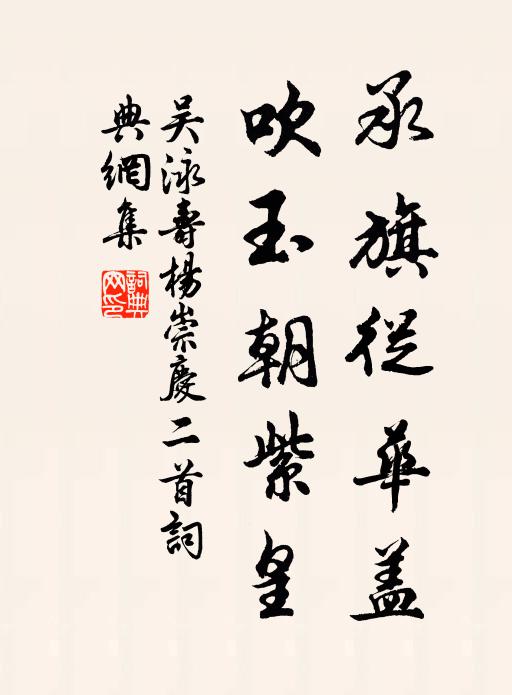 承旗從華盖
吹玉朝紫皇
吴泳壽楊崇慶二首詞
典網集
詞典网印